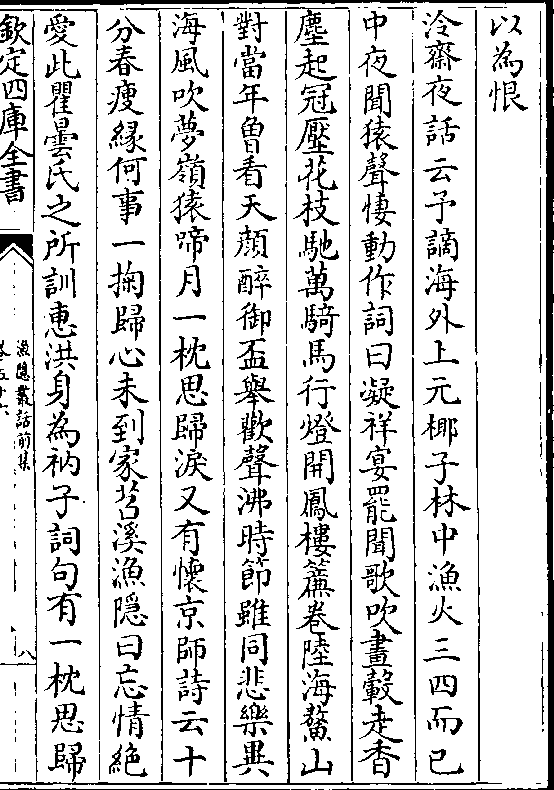 以為恨
泠齋夜話云予謫海外上元椰子林中漁火三四而已
中夜聞猿聲悽動作詞曰凝祥宴罷聞歌吹畫轂走香
塵起冠壓花枝馳萬騎馬行燈開鳳樓簾卷陸海鰲山
對當年曾看天顔醉御盃舉歡聲沸時節雖同悲樂異
海風吹夢嶺猿啼月一枕思歸淚又有懷京師詩云十
分春瘦緣何事一掬歸心未到家苕溪漁隠曰忘情絶
愛此瞿曇氏之所訓惠洪身為衲子詞句有一枕思歸
欽定四庫全書
漁隠叢話前集
卷五十六
八